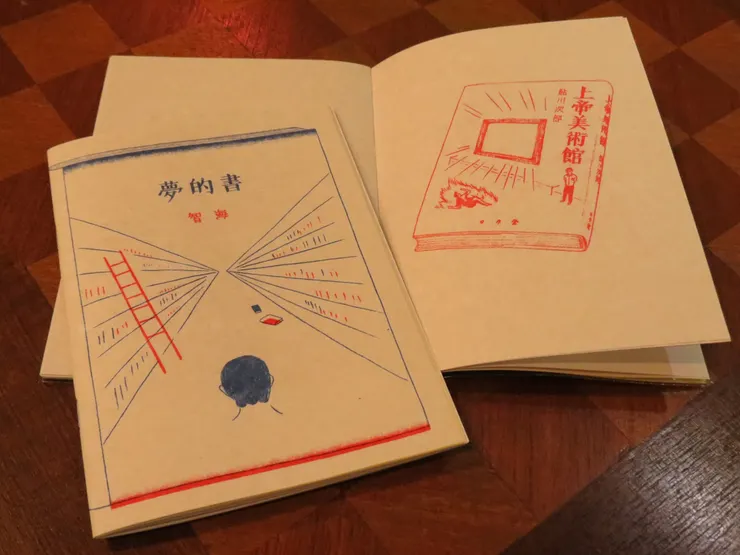 夢的書
智海
上帝美術館